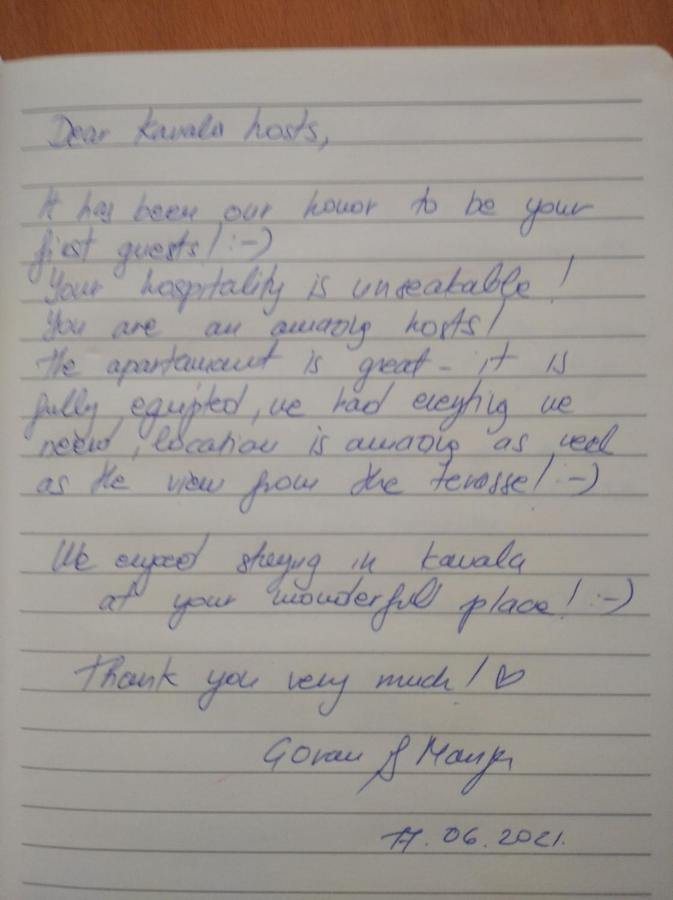 Dear Kavala hosts,
It has been our honor to be your
first guests! :-)
Your hospitality is unseakable!
You are an amazing hosts!
The apartament is great - it is
fully equipted, we had everyting we
need, location is amazing as well
as the view from the terosse! :-)
We enjoed staying in Kavala
at your wonderfull place! :-)
Thank you very much! ♡
Goran &
17.06.2021.